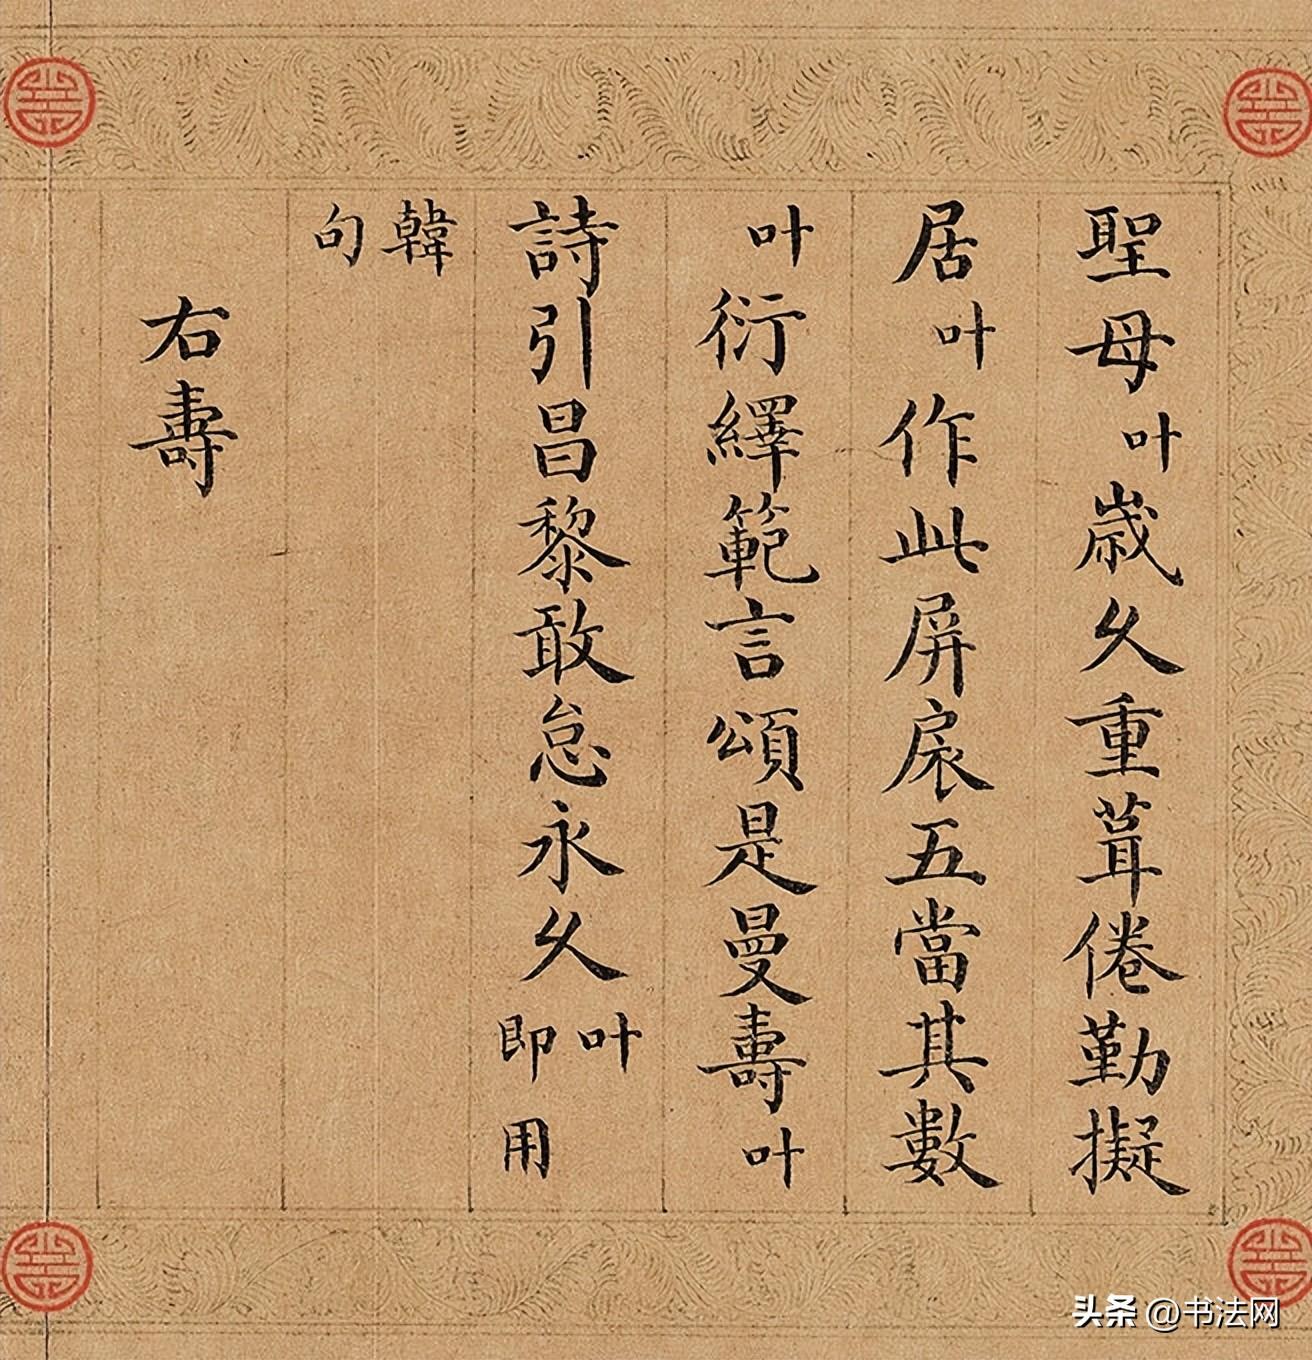 聖母叶歲久重葺倦勤擬
居叶作此屏扆五當其數
叶衍繹範言頌是曼壽叶
詩引昌黎敢怠永久叶即用
韓句
右壽
头条 @书法网